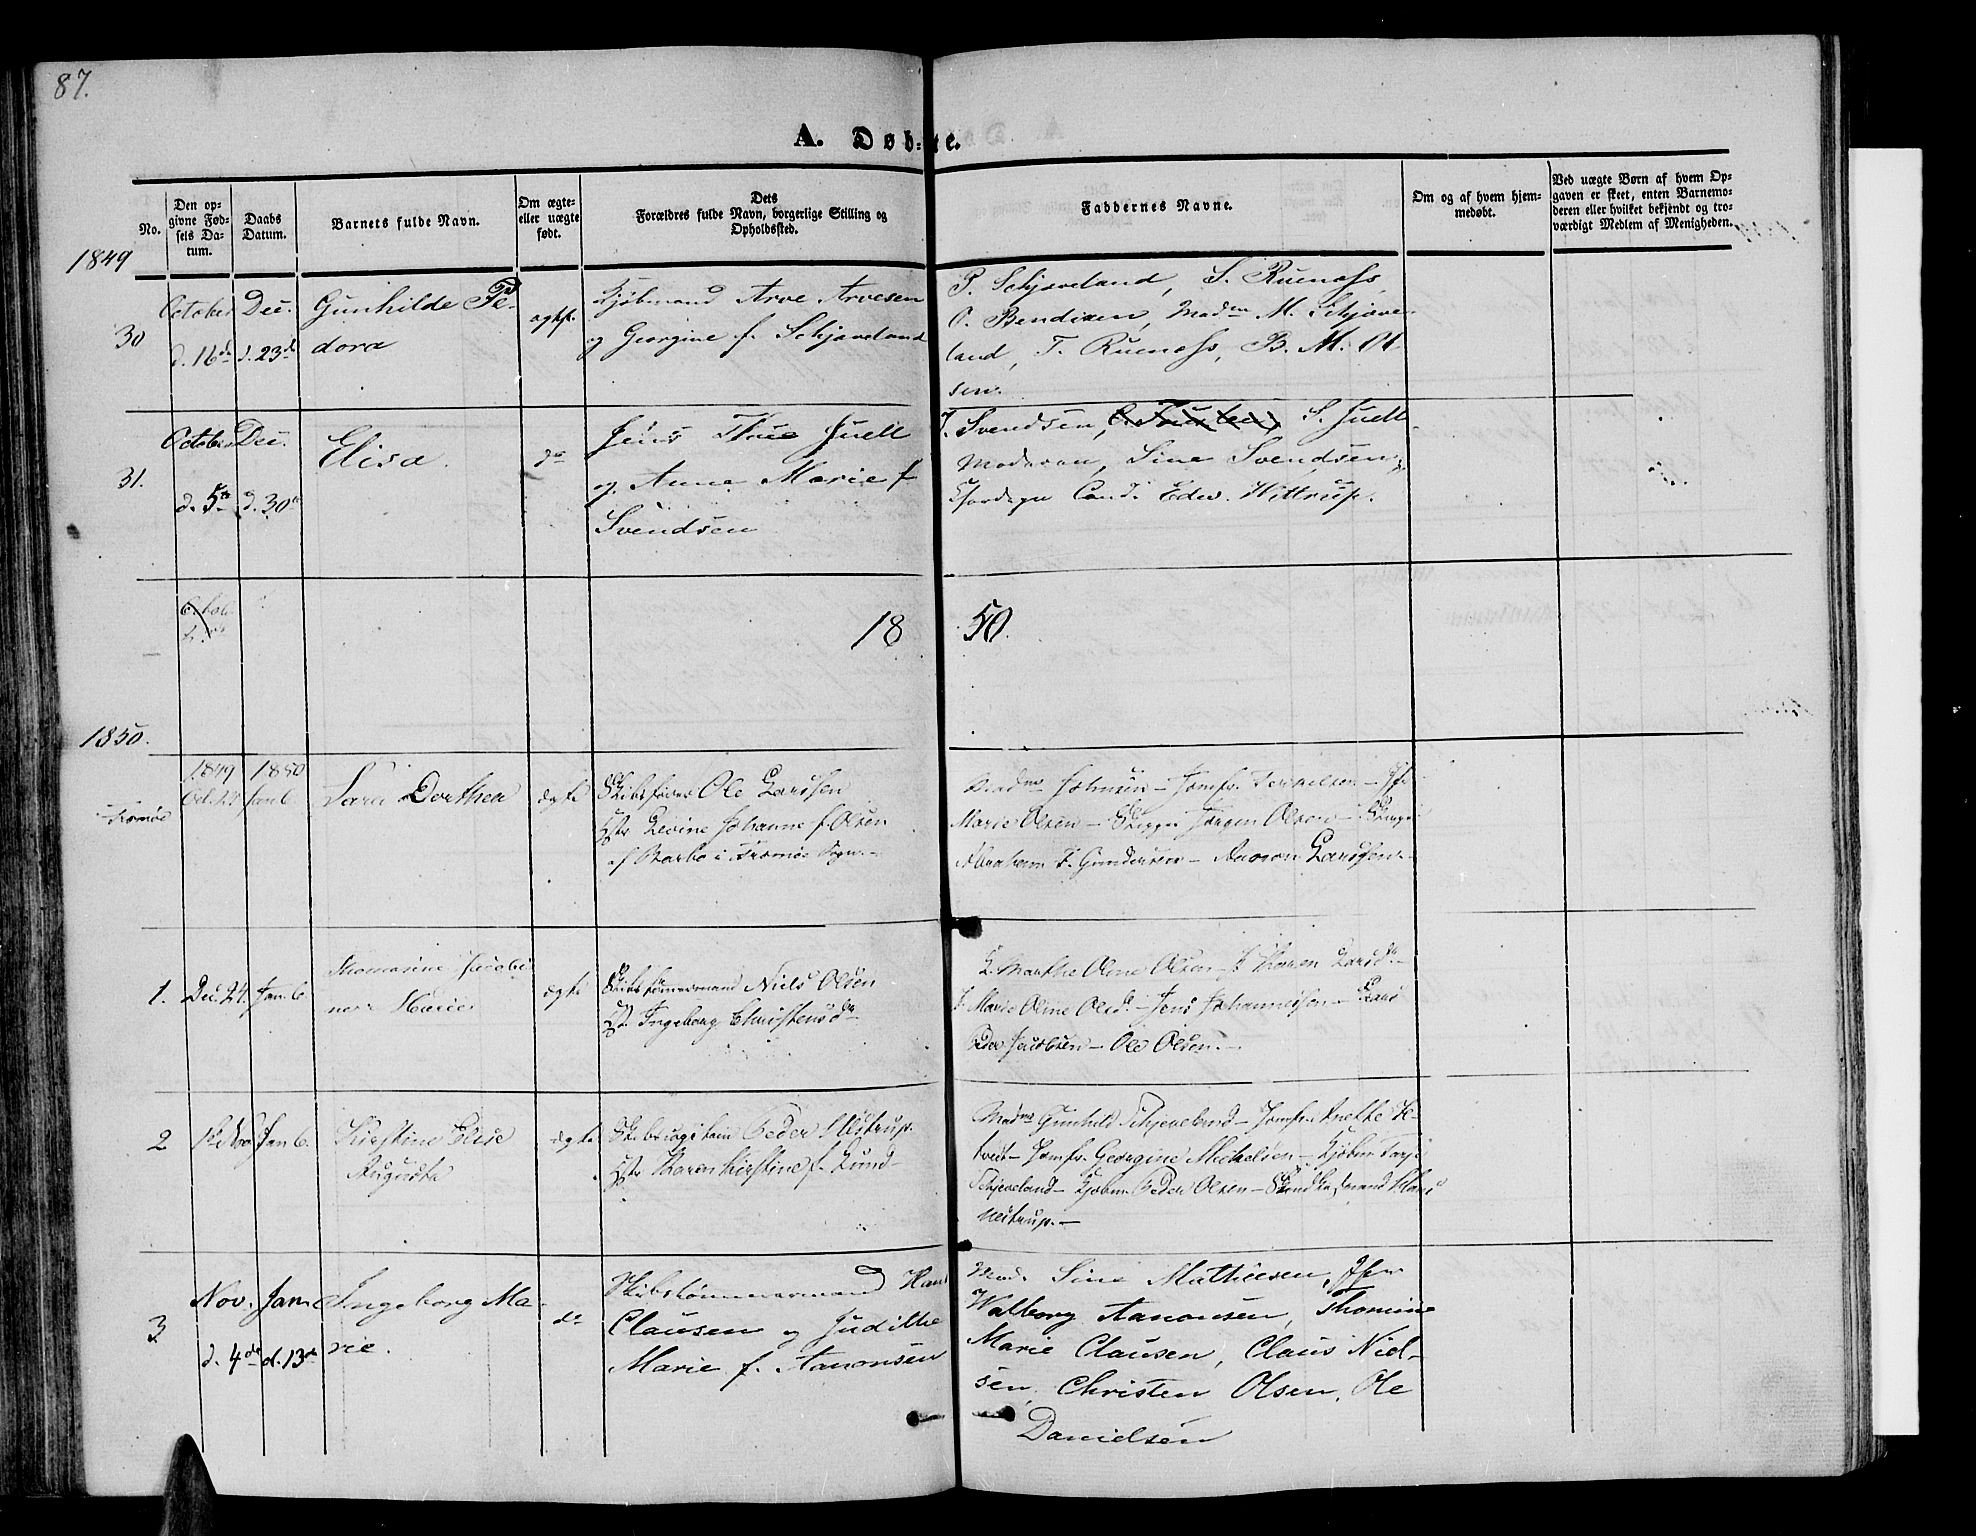 87.
A. Døbte.
No.
Den op-
givne Fød-
sels Da-
tum.
Daabs
Datum.
Barnets fulde Navn.
Om ægte-
eller uægte
født.
Dets
Forældres fulde Navn, borgerlige Stilling og
Opholdssted.
Faddernes Navne.
Om og af hvem hjem-
medøbt.
Ved uægte Børn af hvem Op-
gaven er skeet, enten Barnemo-
deren eller hvilket bekjendt og tro-
værdigt Medlem af Menigheden.
1849
30
October
d. 16de
Dec.
d. 23de
Gunhilde Fe-
dora
Kjøbmand Arve Arvesen
og Georgine f. Schjaveland
P. Schjaveland, S. Ruenæss,
O. Bendixen, Madm M. Schjave-
land, T. Ruenæss, B. M. Ol-
sen.
31.
October
d. 5te
Dec.
d. 30te
Elisa.
do
Jens Thue Juell
og Anne Marie f
Svendsen
Svendsen, S. Juell.
Moderen, Sine Svendsen,
Cand. Edw. Wittrup.
1850.
1850.
Tromøe
1849
Oct. 23
1850
Jan 6.
Sara Dorthea
ægte
Skibsfører Ole Larssen
Hst Levine Johanne f. Olsen
af Barbo i Tromøe Sogn.-
Madme Johnsen - Jomfr. Terkelsen - Jfr.
Marie Olsen - Skipper Jørgen Olsen - Skipper
Abraham F. Gundersen - Aanon Larssen.-
1.
Dec. 24.
Jan. 6.
Thomasine Jacobi-
ne Marie
ægte
Skibstømmermand Niels Olsen
H. Ingeborg Christensdr
K. Marthe Oline Olsen - P. Karen Larsdr -
P. Marie Oline Olsd. - Jens Johannesen - Lars
Peder Jacobsen - Ole Olsen. -
2
12 Nov
Jan 6.
Kirstine Elise
Augusta
ægte
Skibscapitain Peder Nestrup.
Hst Karen Kirstine f. Lund -
Madme Gunhild Schjeveland - Jomfr. Anette
- Jomfr. Georgine Mickelsen - Kjøbm. Tarje
Schjeveland - Kjøbm. Peder Olsen - Hans
Nestrup. -
3
Nov.
d. 4de
Jan.
d. 13de
Ingeborg Ma-
rie.
do
Skibstømmermand Hans
Clausen og Judithe
Marie f. Aanonsen
Mad. Sine Mathiesen, Jfr
Walborg Aanonsen, Thomine
Marie Clausen, Claus Niel-
sen, Christen Olsen, Ole
Danielsen